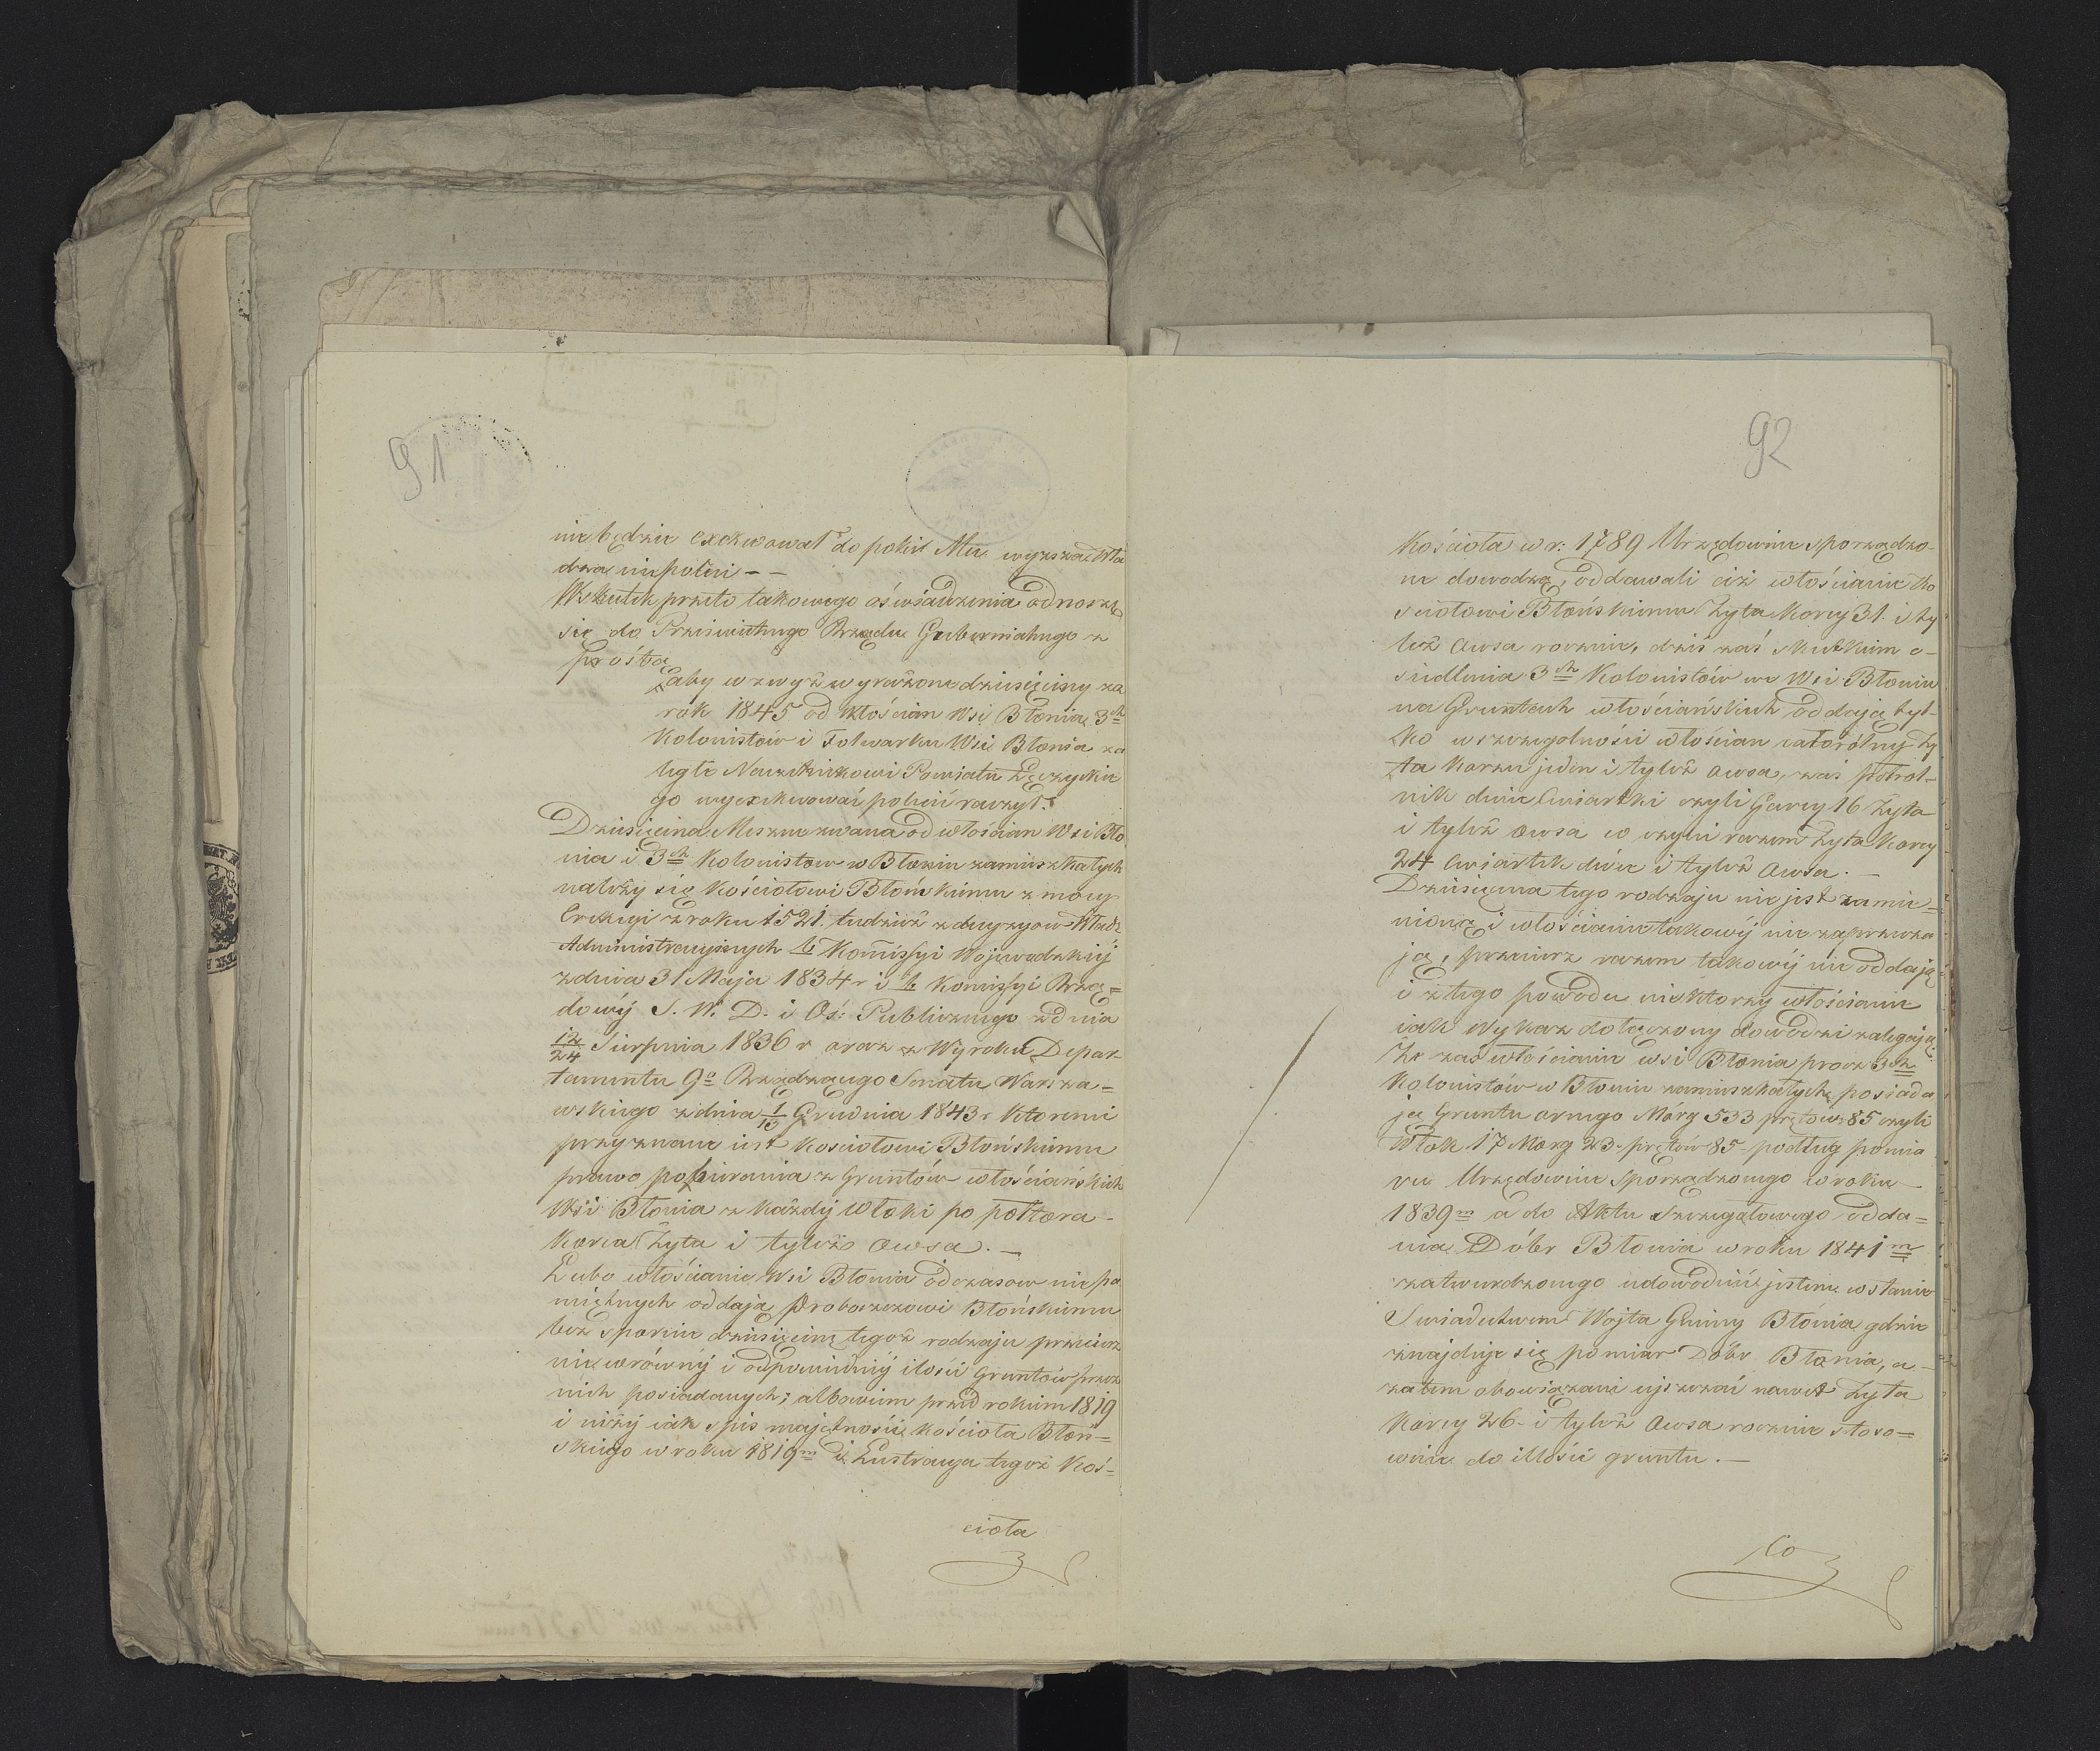 91
nie będzie exekwował dopokić Mu wyższa Wła
dza niepoleci - -
W skutek przeto takowego oświadczenia odnoszę
się do Prześwietnego Rządu Gubernialnego z
prośbą
aby wzwyż wyrażone dziesięciny za
rok 1845 od Włościan Wsi Błonia, 3ch
Kolonistów i Folwarku Wsi Błonia za
ległe Naczelnikowi Powiatu Łęczyckie
go wyexekwować polecić raczył.
Dziesięcina Meszne zwana od włościan Wsi Bło
nia i 3ch Kolonistow w Błoniu zamieszkałych
należy się Kościołowi Błońskiemu z mocy
Erekcyi z roku 1521. tudzież z decyzyow Władz
Administracyjnych b. Komissyi Wojewodzkiéj
z dnia 31 Maja 1834 r i b. Komissyi Rzą=
dowéj S. W. D. i Oś: Publicznego z dnia
12/24 Sierpnia 1836 r oraz z Wyroku Depar
tamentu 9o Rządzącego Senatu Warsza=
wskiego z dnia 1/13 Grudnia 1843 r Któremi
przyznane iest Kościołowi Błońskiemu
prawo pobierania z Gruntów włościańskich
Wsi Błonia z każdéj Włoki po półtora
Korca Żyta i tyleż Owsa. —
Lubo włościanie Wsi Błonia od czasow niepa
miętnych oddają Proboszczowi Błońskiemu
bez spornie dziesięcinę tegoż rodzaju przecież
nie wrównéj i odpowiedniéj ilości Gruntów przez
nich posiadanych; albowiem przed rokiem 1819
i niżéj iak spis majętności Kościoła Błoń=
skiego w roku 1819m i Lustracya tegoż Koś=
cioła
92
Kościoła w r: 1789 Urzędownie sporządzo-
ne dowodzą, oddawali ciż włościanie Ko
sciołowi Błońskiemu Żyta Korcy 31. i ty
leż Owsa rocznie, dziś zaś skutkiem o-
siedlenia 3ch Kolonistów we Wsi Błoniu
na Gruntach włościańskich oddają tyl-
ko w szczególności włościan całorólny Ży
ta Korzec jeden i tyleż Owsa, zaś półrol-
nik dwie Cwiartki czyli Garcy 16 Żyta
i tyleż Owsa co czyni razem Żyta Korcy
24 Cwiartek dwie i tyleż Owsa. —
Dziesięcina tego rodzaju nie jest zamie=
nioną i włościanie takowéj nie zaprzecza
ją, przecież razem takowéj nie oddają
i z tego powodu niektorzy włościanie
iak Wykaz dołączony dowodzi zalegają.
Że zaś włościanie Wsi Błonia procz 3ch
Kolonistów w Błoniu zamieszkałych, posiada
ją Gruntu ornego Morg 533 prętów 85 czyli
Włok 17 Morg 23. prętów 85 podług pomia
ru Urzędownie sporządzonego w roku
1839m a do Aktu Szczegułowego odda=
nia Dóbr Błonia w roku 1841m
zatwierdzonego udowodnić jestem w stanie
Swiadectwem Wójta Gminy Błonia gdzie
znajduje się pomiar Dóbr Błonia, a
zatem obowiązani uiszczać nawet Żyta
Korcy 26 i tyleż Owsa rocznie stoso=
wnie do illości gruntu. —
Co